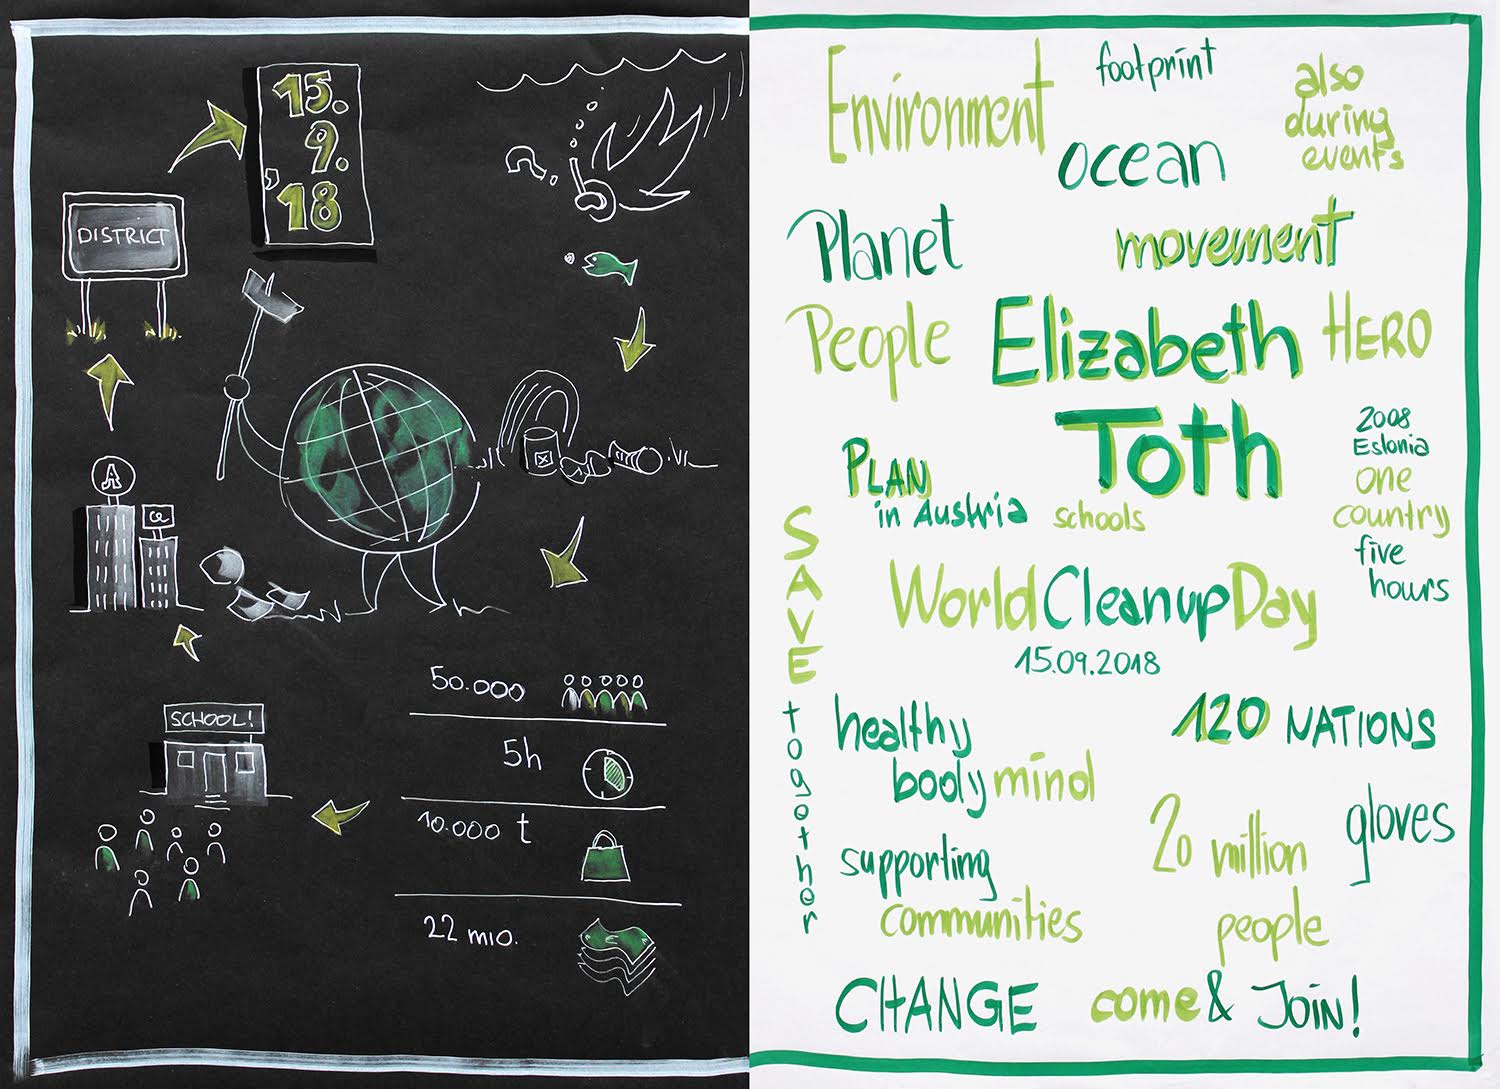 15.
9.
'18
DISTRICT
A
SCHOOL!
50.000
5h
10.000 t
22 mio.
Environment
footprint
also
during
events
ocean
Planet
movement
People
Elizabeth
Toth
HERO
2008
Eslonia
one
country
five
hours
PLAN
in Austria
schools
SAVE
together
WorldCleanupDay
15.09.2018
healthy
body mind
120 NATIONS
20 million
people
gloves
supporting
communities
CHANGE
come & JOiN!